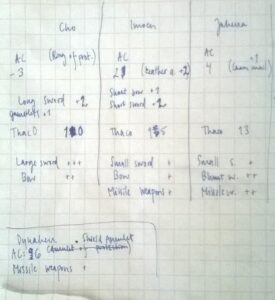 Cho
AC (Ring of prot.)
-3
Long Sword +2
gauntlets +1
Thac0
Large sword +++
Bow ++
Imoen
AC
2 (leather a. +2)
Short bow +1
Short sword +2
Thaco
Small sword +
Bow +
Missile weapons ++
Jaheira
AC +1
4 (chain mail)
Thaco 13
Small s. +
Blunt w. ++
Missile w. ++
Dynaheir • Shield amulet
AC = 6 (amulet of protection)
Missile weapons +